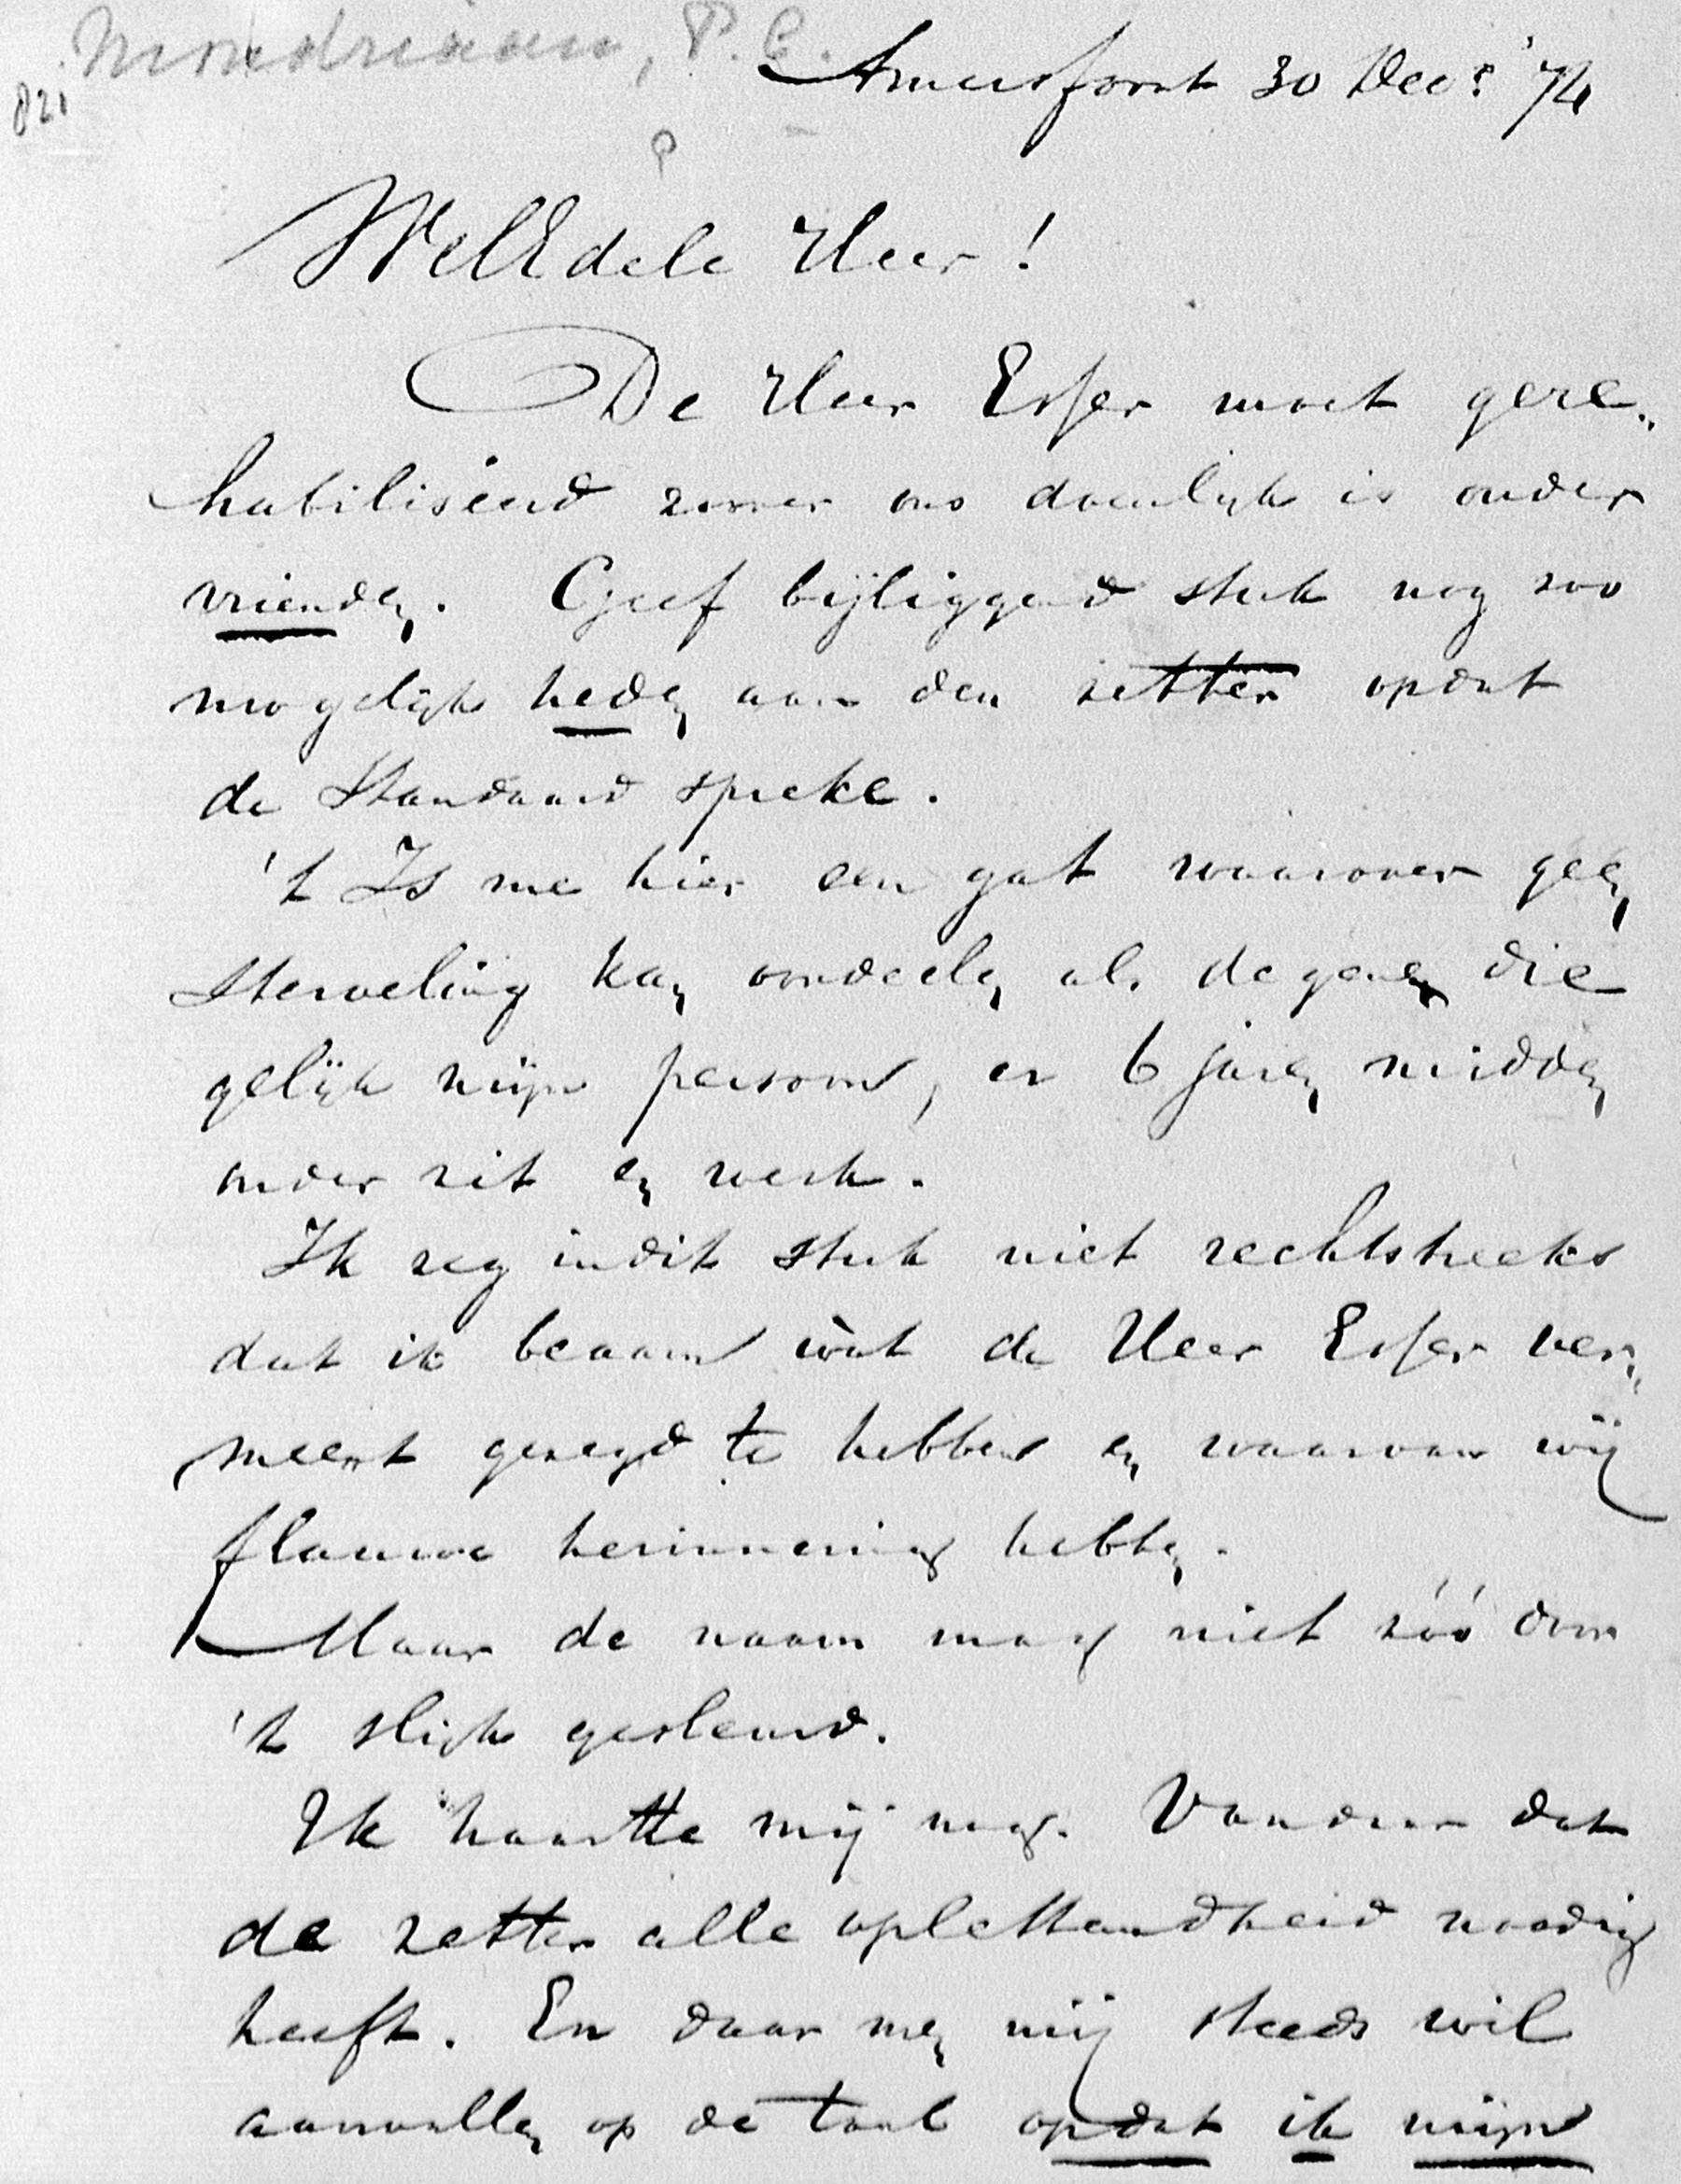 Mondriaan, P.C.
821
Amersfoort 30 Dec.r '74
WelEdele Heer!
De Heer Esser moet gere„
habiliseerd zoover ons doenlijk is onder
vrienden. Geef bijliggend stuk nog zoo
mogelijk heden aan den zetter opdat
de Standaard spreke.
't Is me hier een gat waarover geen
sterveling kan oordeelen als degenen die
gelijk mijn persoon, er 6 jaren midden
onder zit en werk.
Ik zeg in dit stuk niet rechtstreeks
dat ik beaam wàt de Heer Esser ver„
meent gezegd te hebben en waarvan wij
flauwe herinnering hebben.
Maar de naam mag niet zóó door
't slijk gesleurd.
Ik haastte mij nog. Vandaar dat
de zetter alle oplettendheid noodig
heeft. En daar men mij steeds wil
aanvallen op de taal opdat ik mijn